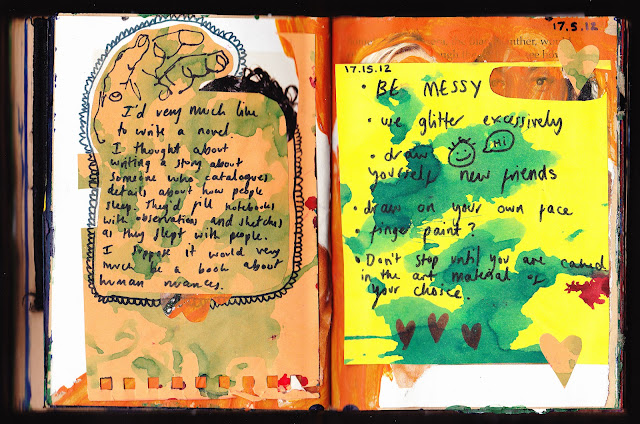 I'd very much like
to write a novel.
I thought about
writing a story about
someone who catalogues
details about how people
sleep. They'd fill notebooks
with observations and sketches
as they slept with people.
I suppose it would very
much be a book about
human nuances.
17.5.12
17.15.12
• BE MESSY
• use glitter excessively
• draw HI
yourself new friends
• draw on your own face
• finger paint?
• Don't stop until you are caked
in the art material of
your choice.